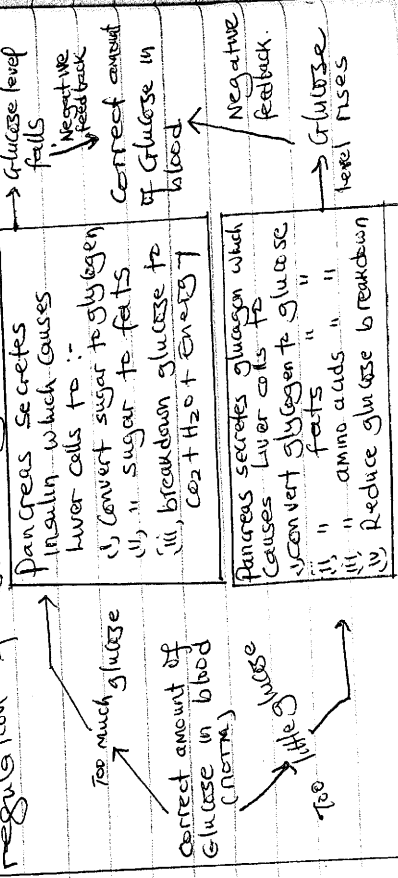 regulation of
Too much glucose
Correct amount of
Glucose in blood
(norm)
Too little glucose
Pancreas secretes
insulin which causes
Liver cells to :-
(i), Convert sugar to glycogen
(ii), " sugar to fats
(iii, breakdown glucose to
CO2 + H2O + Energy
Pancreas secretes glucagon which
Causes Liver cells to
(i, convert glycogen to glucose
(ii, " fats " "
(iii, " amino acids " "
(iv) Reduce glucose breakdown
→ Glucose level
falls
Negative
feedback
Correct amount
of Glucose in
blood
Negative
feedback.
→ Glucose
level rises